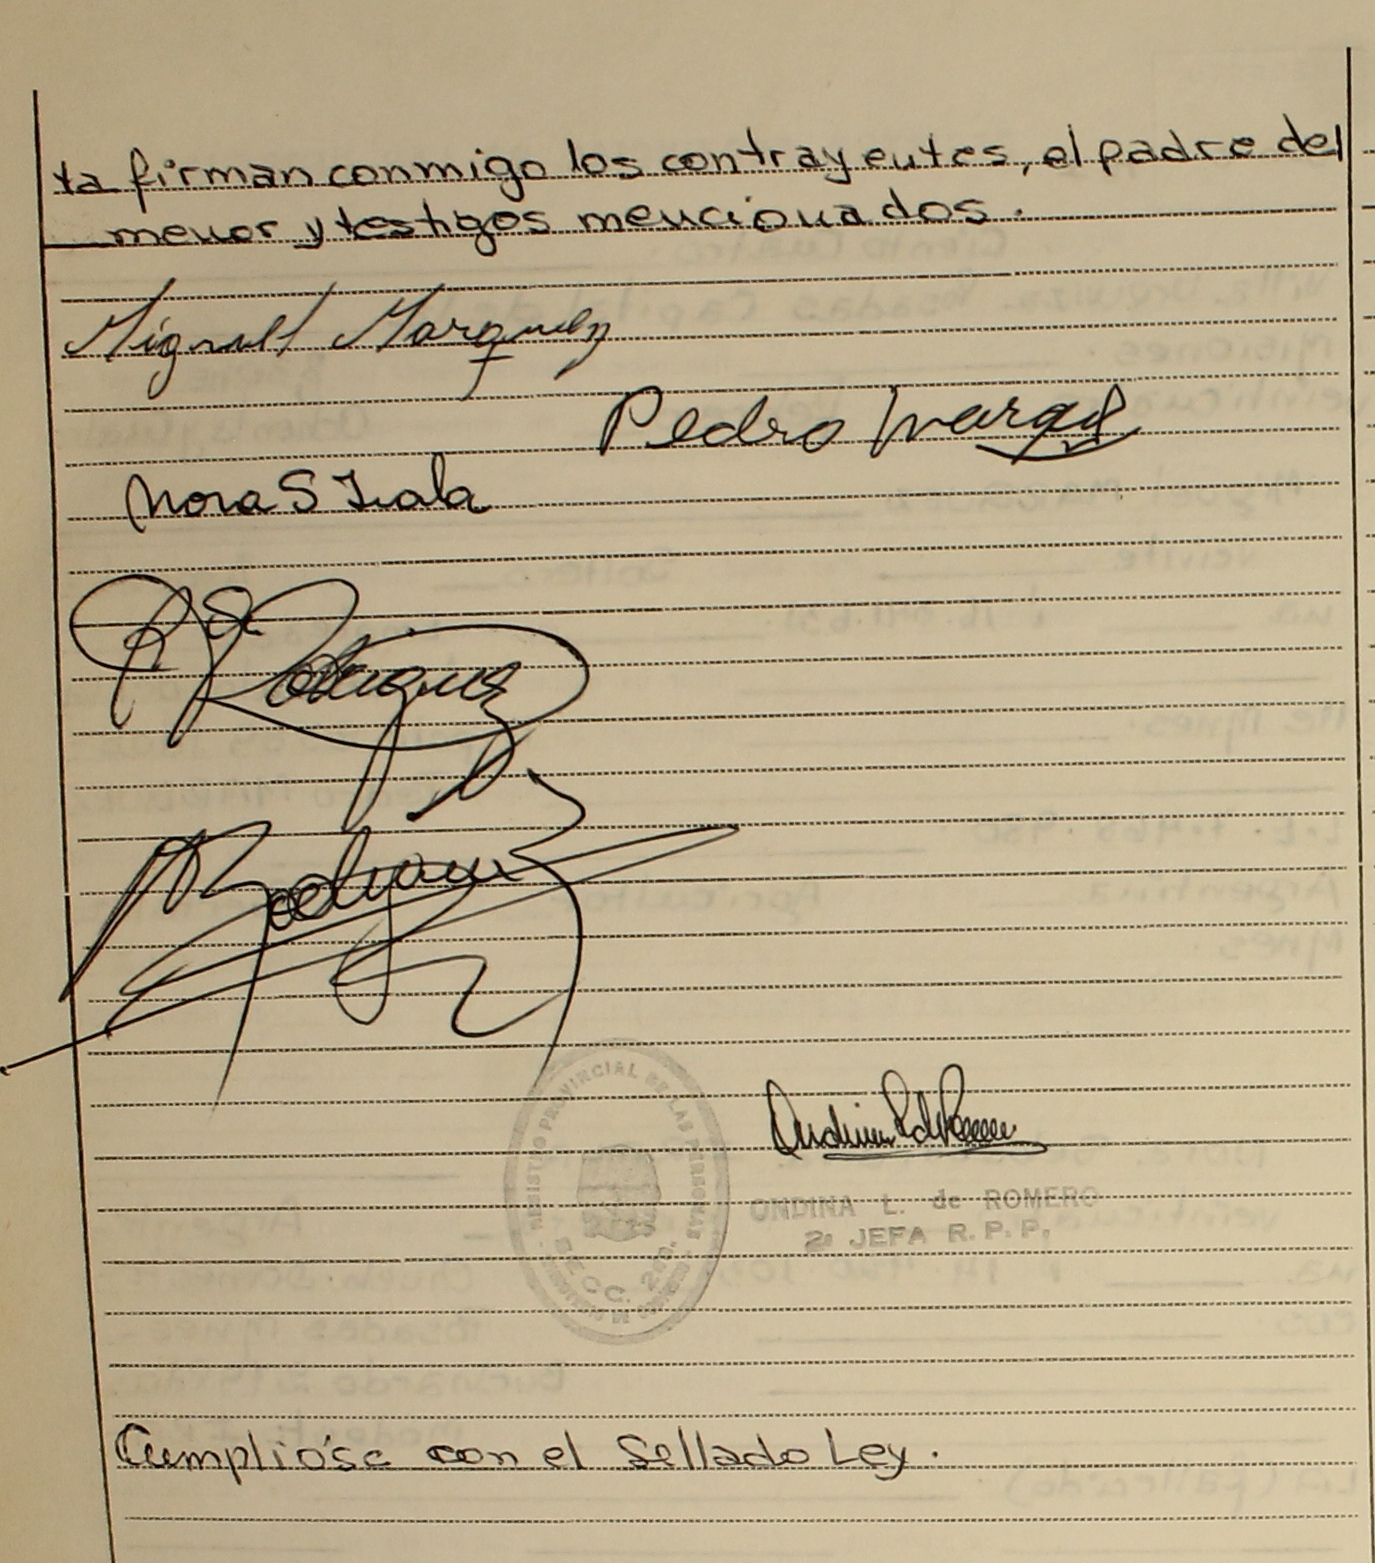 ta firman conmigo los contrayentes, el padre del
menor y testigos mencionados.
Miguel Marquez
Pedro
Nora S
Rodriguez
Rodriguez
REGISTRO PROVINCIAL DE LAS PERSONAS
SECC. 2da.
ONDINA L. de ROMERO
2ª JEFA R. P. P.
Cumplióse con el Sellado Ley.